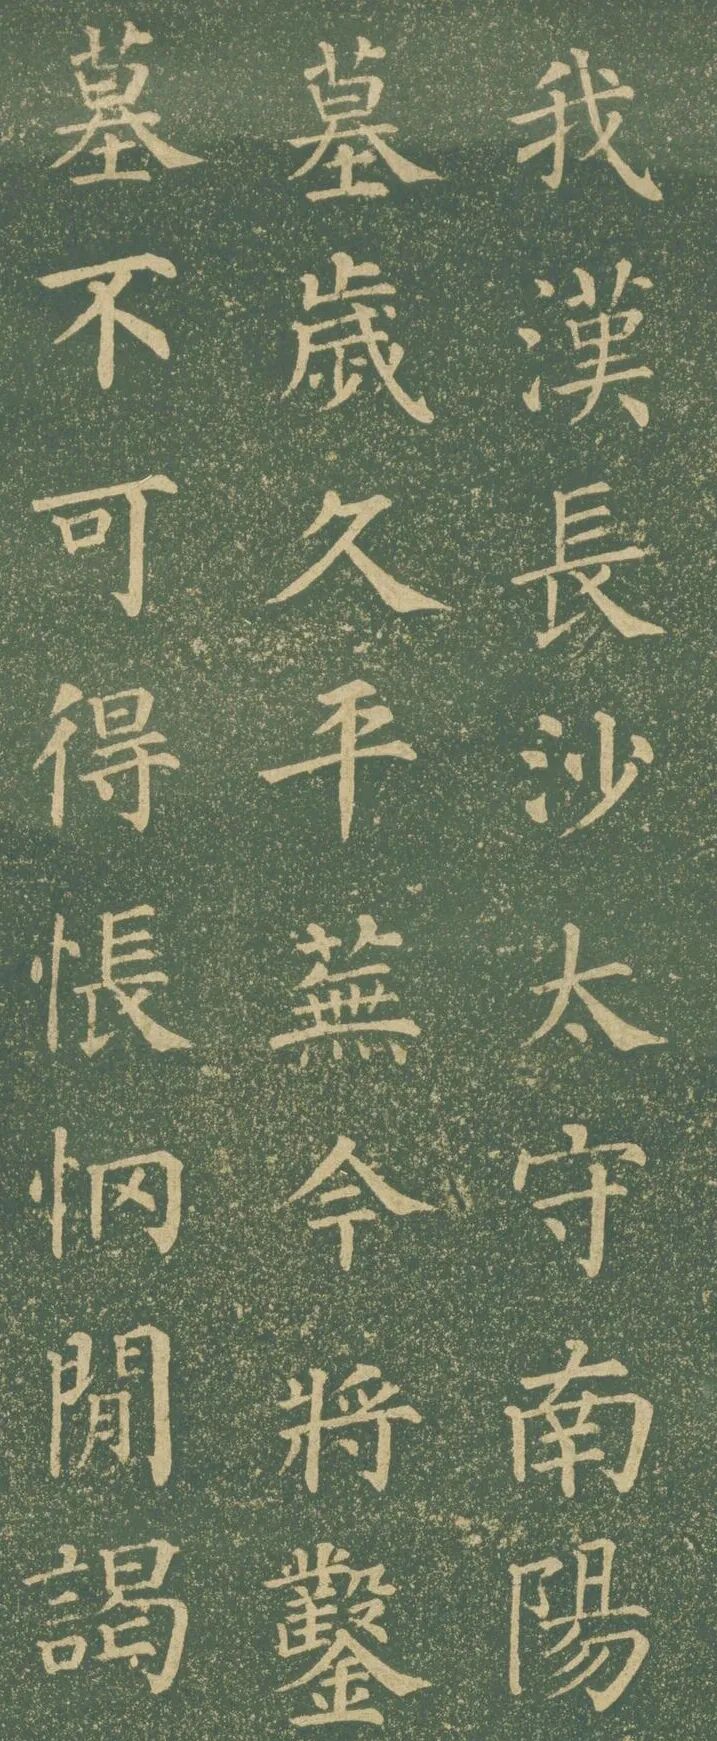 我漢長沙太守南陽
墓歲久平蕪今將鑿
墓不可得悵惘閒謁